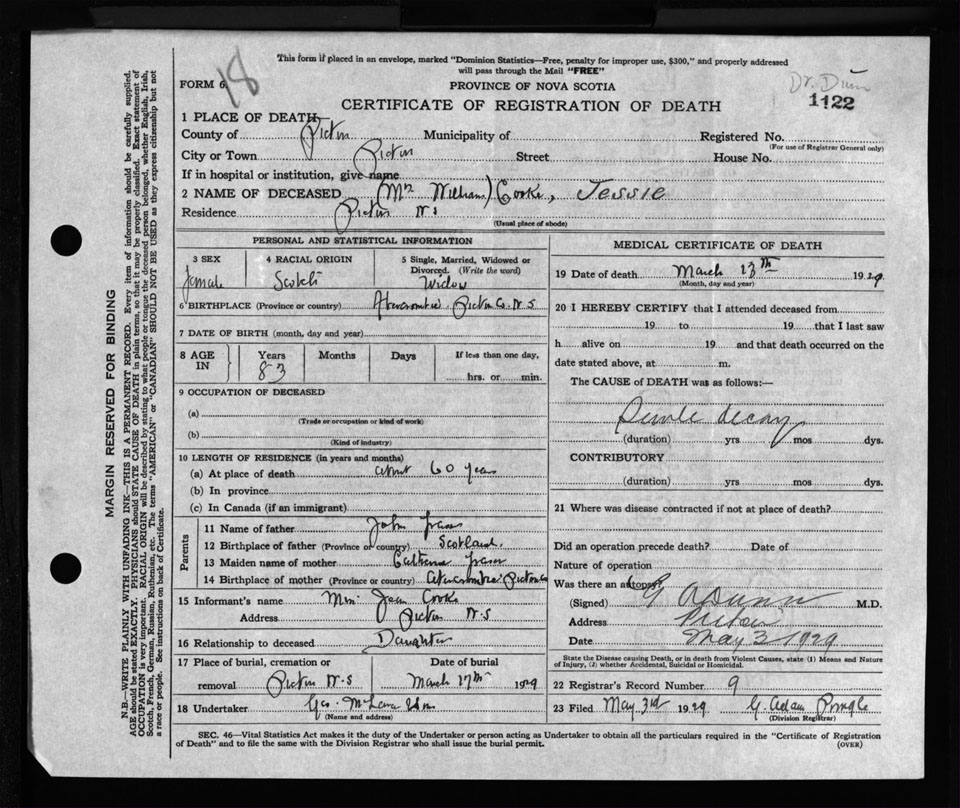 This form if placed in an envelope, marked "Dominion Statistics—Free, penalty for improper use, $300," and properly addressed
will pass through the Mail "FREE"
FORM 6
18
PROVINCE OF NOVA SCOTIA
Dr. Dunn
1122
CERTIFICATE OF REGISTRATION OF DEATH
1 PLACE OF DEATH
County of Pictou Municipality of Registered No.
(For use of Registrar General only)
City or Town Pictou Street House No.
If in hospital or institution, give name
2 NAME OF DECEASED (Mrs William) Cooke, Jessie
Residence Pictou N.S
(Usual place of abode)
PERSONAL AND STATISTICAL INFORMATION
3 SEX 4 RACIAL ORIGIN 5 Single, Married, Widowed or
Divorced. (Write the word)
Female Scotch Widow
6 BIRTHPLACE (Province or country) Abercrombie Pictou Co. N.S
7 DATE OF BIRTH (month, day and year)
8 AGE IN Years Months Days If less than one day,
83 hrs. or min.
9 OCCUPATION OF DECEASED
(a)
(Trade or occupation or kind of work)
(b)
(Kind of industry)
10 LENGTH OF RESIDENCE (in years and months)
(a) At place of death about 60 years
(b) In province
(c) In Canada (if an immigrant)
Parents
11 Name of father John Fraser
12 Birthplace of father (Province or country) Scotland
13 Maiden name of mother Catherine Fraser
14 Birthplace of mother (Province or country) Abercrombie Pictou Co
15 Informant's name Cooke
Address Pictou N.S
16 Relationship to deceased Daughter
17 Place of burial, cremation or Date of burial
removal Pictou N.S March 17th 1929
18 Undertaker Geo. & Son
(Name and address)
MEDICAL CERTIFICATE OF DEATH
19 Date of death March 13th 1929
(Month, day and year)
20 I HEREBY CERTIFY that I attended deceased from
19 to 19 that I last saw
h alive on 19 and that death occurred on the
date stated above, at m.
The CAUSE of DEATH was as follows:—
Senile decay
(duration) yrs mos dys.
CONTRIBUTORY
(duration) yrs mos dys.
21 Where was disease contracted if not at place of death?
Did an operation precede death? Date of
Nature of operation
Was there an autopsy?
(Signed) G A Dunn M.D.
Address Pictou
Date May 3 1929
State the Disease causing Death, or in death from Violent Causes, state (1) Means and Nature
of Injury, (2) whether Accidental, Suicidal or Homicidal.
22 Registrar's Record Number 9
23 Filed May 3rd 1929 G. Adam Pringle
(Division Registrar)
SEC. 46—Vital Statistics Act makes it the duty of the Undertaker or person acting as Undertaker to obtain all the particulars required in the "Certificate of Registration
of Death" and to file the same with the Division Registrar who shall issue the burial permit. (OVER)
MARGIN RESERVED FOR BINDING
N.B.—WRITE PLAINLY WITH UNFADING INK—THIS IS A PERMANENT RECORD. Every item of information should be carefully supplied.
AGE should be stated EXACTLY. PHYSICIANS should STATE CAUSE OF DEATH in plain terms, so that it may be properly classified. Exact statement of
OCCUPATION is very important. RACIAL ORIGIN will be described by stating to what people or tongue the deceased person belonged, whether English, Irish,
Scotch, French, German, Russian, Ruthenian, etc. The terms "AMERICAN" or "CANADIAN" SHOULD NOT BE USED as they express citizenship but not
a race or people. See instructions on back of Certificate.